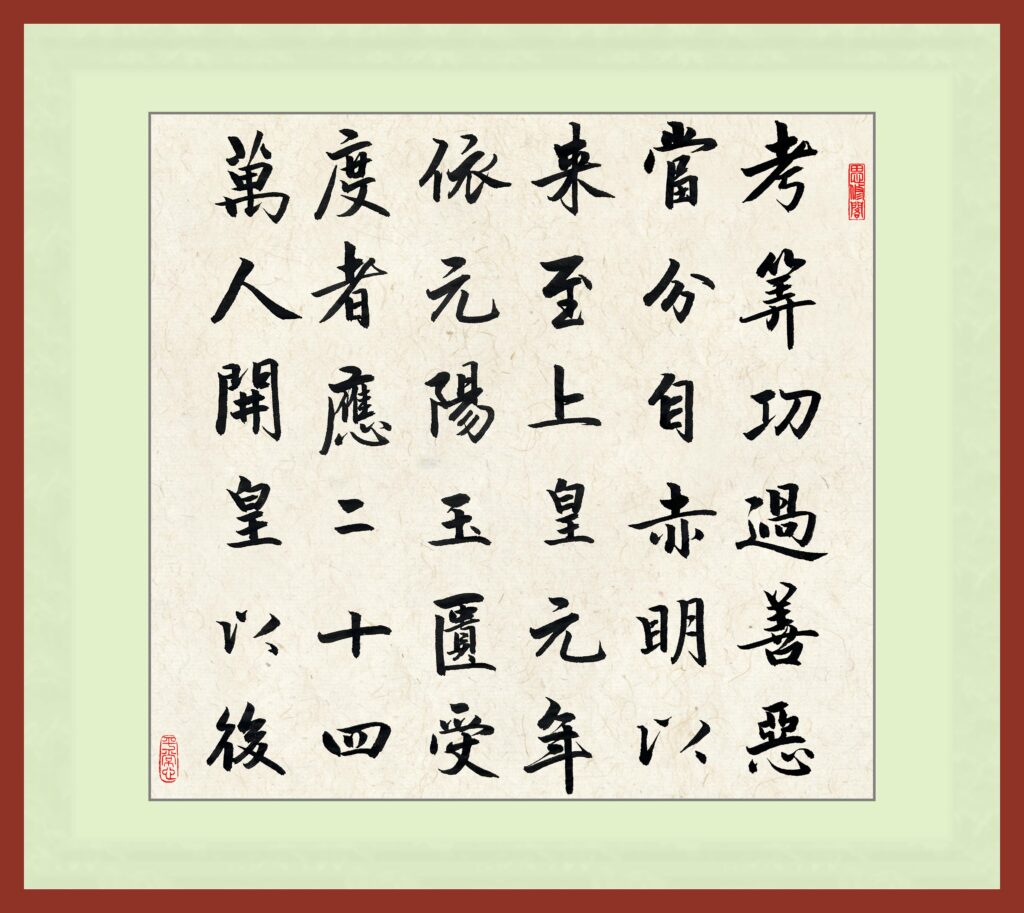 考筭功過善惡
當分自赤明以
来至上皇元年
依元陽玉匱受
度者應二十四
萬人開皇以後
思修閣
平常心